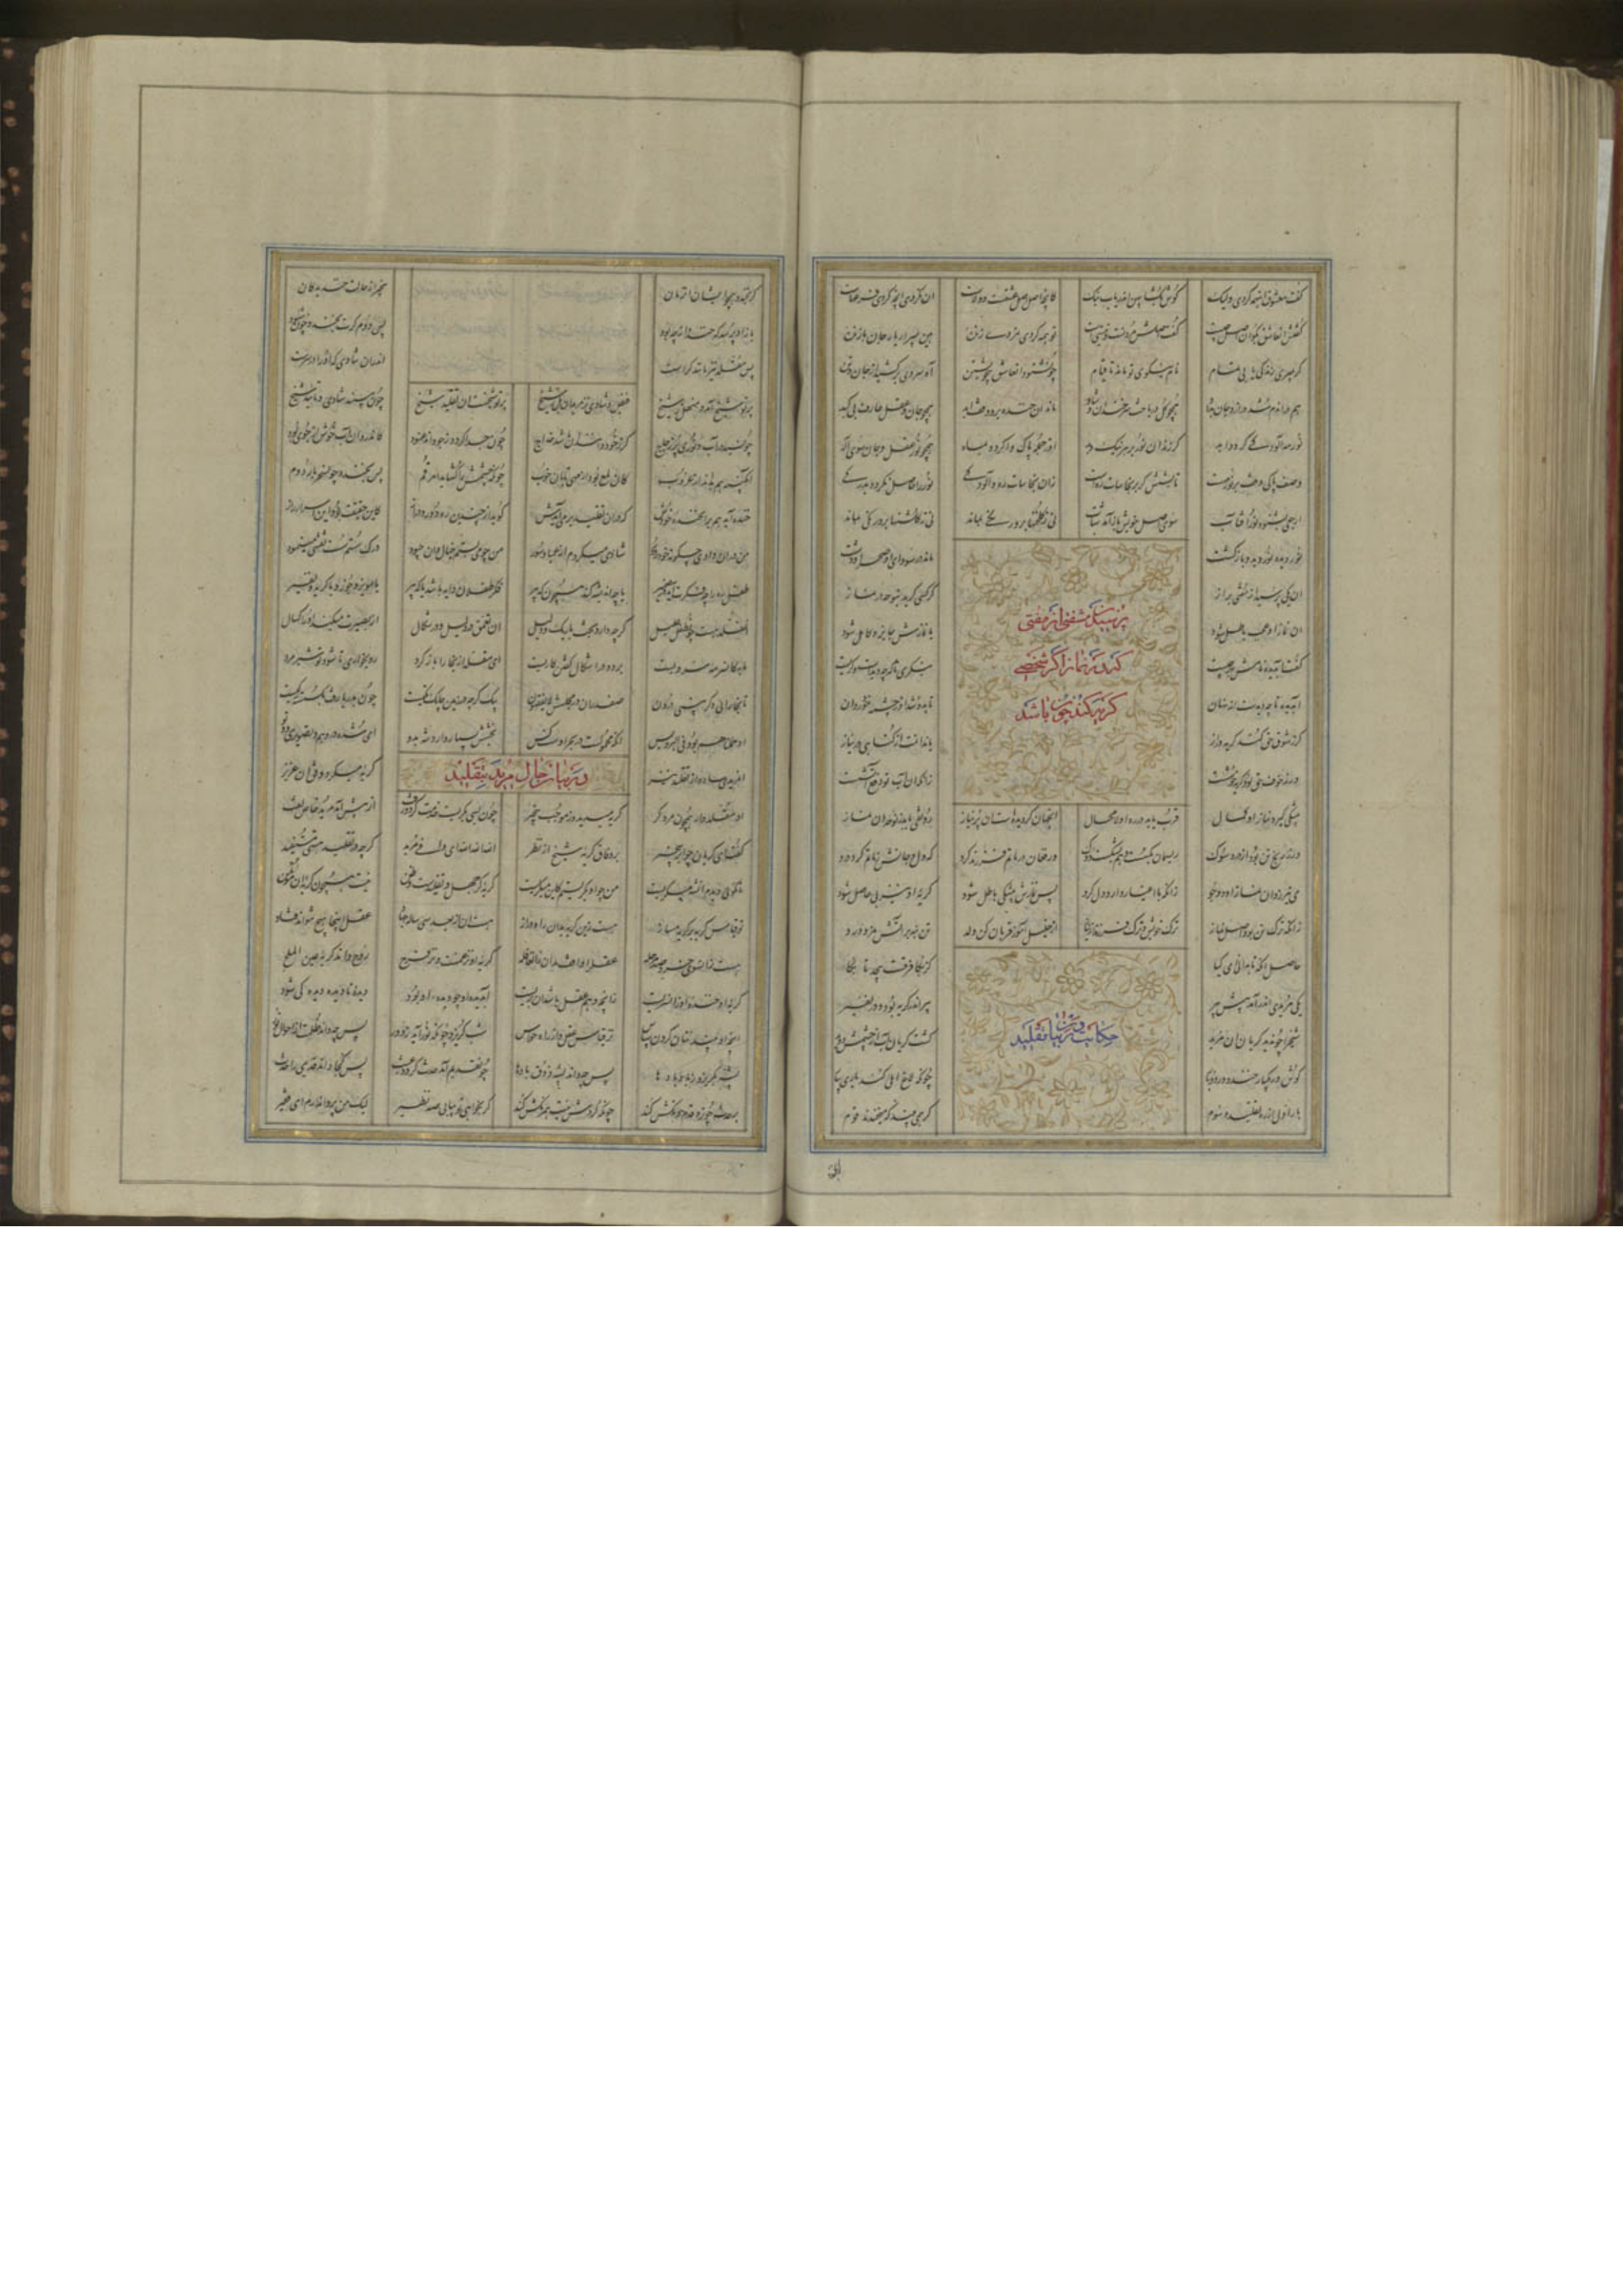 گفت معشوق این همه کردی ولیک گوش بگشا پهن اندر یاب نیک کانچه اصل اصل عشقست و ولاست ان نکردی اینچه کردی فرعهاست
گفتش ان عاشق بگو ان اصل چیست گفت اصلش مردنست و نیستیست تو همه کردی نمردی زنده هین بمیر ار یار جان بازنده
گر بمیری زندگی یابی تمام نام نیکوی تو ماند تا قیام چون شنود ان عاشق بیخویشتن آه سردی برکشید از جان و تن
هم در ان دم شد دراز و جان بداد همچو گل درباخت سر خندان و شاد ماند ان خنده برو وقف ابد همچو جان و عقل عارف بی کبد
نور مه آلوده کی گردد ابد گر زند ان نور بر هر نیک و بد او ز جمله پاک وا گردد بماه همچو نور عقل و جان سوی اله
وصف پاکی وقف بر نور مهست تابشش گر بر نجاسات رهست زان نجاسات ره و آلودگی نور را حاصل نگردد بدرگی
ارجعی بشنود نور آفتاب سوی اصل خویش باز آمد شتاب نی ز گلخنها برو ننگی بماند نی ز گلشنها برو رنگی بماند
نور دیده نور دیده بازگشت ماند در سودای او صحرا و دشت
پرسیدن شخصی از مفتی
که در نماز اگر شخصی
گریه کند چون باشد
ان یکی پرسید از مفتی براز گر کسی گرید بنوحه در نماز
ان نماز او عجب باطل شود یا نمازش جایز و کامل شود
گفت آب دیده نامش بهر چیست بنگری تا که چه دیدست و گریست
آب دیده تا چه دیدست از نهان تا بدان شد او ز چشمه خود روان
گر ز شوق حق کند گریه دراز یا ندامت از گناهی در نیاز
ور ز خوف حق بود گریه خوشست زانکه ان آب تو دفع آتشست
بیشکی گیرد نماز او کمال قرب یابد در ره او لامحال انجهان گر دیده است ان پر نیاز رونقی یابد ز نوحه ان نماز
ور ز رنج تن بود از درد و سوک ریسمان بگسست و هم بشکست دوک ور فغان در ماتم فرزند کرد که دل و جانش ز ماتم کرد درد
می نیرزد ان نماز او دو جو زانکه با اغیار دارد دل گرو پس نمازش بیشکی باطل شود گریه او نیز بی حاصل شود
زانکه ترک تن بود اصل نماز ترک خویش و ترک فرزند از نیاز از خلیل آموز قربان کن ولد تن بنه بر آتش نمرود رد
حاصل آنکه تا بدانی ای کیا کز بکا فرقست بیحد تا بکا
حکایت در بیان تقلید
یکی مریدی اندر آمد پیش پیر پیر اندر گریه بود و در نفیر
شیخ را چون دید گریان ان مرید گشت گریان آب از چشمش دوید
گوش ور یکبار خندد کر دو بار چونکه لاغ املی کند یاری بیار
بار اول از ره تقلید و سوم که همی بیند که میخندند قوم
کر بخندد همچو ایشان ان زمان بیخبر از حالت خندیدگان
باز واپرسد که خنده بر چه بود پس دوم کرت بخندد چون شنود
پس مقلد نیز مانند کر است اندران شادی که او را در سرست
پرتو شیخ آمد و منهل ز شیخ فیض و شادی نز مریدان بل ز شیخ پرتو شیخست ان تقلید شیخ چون ببیند شادی و تایید شیخ
چون سبد در آب و نوری بر زجاج گر ز خود دانند ان باشد خداج چون جدا گردد ز جو داند عنود کاندرو ان آب خوش از جوی بود
آبگینه هم بداند از غروب کان لمع بود از مه تابان خوب چونکه چشمش را گشاید امر قم پس بخندد چون سحر بار دوم
خنده آید هم بران خنده خودش که دران تقلید بر می آمدش گوید از چندین ره دور و دراز کاین حقیقت بود و این اسرار و راز
من دران وادی چگونه خود ز دور شادی میکردم از عمیا و سور من چه می بستم خیال و ان چه بود درک سستم سست نقشی مینمود
طفل ره را چه فکرت آید در ضمیر یا چه اندیشه کند همچون که پیر فکر طفلان دایه باشد یا که شیر یا مویز و جوز و یا گریه و نفیر
ان مقلد هست چون طفل علیل گرچه دارد بحث باریک و دلیل ان تعمق در دلیل و در شکال از بصیرت میکند او را گسال
مایه کان سرمه سر ویست برد و در اشکال گفتن کار بست ای مقلد از بخارا باز گرد رو بخواری تا شوی تو شیر مرد
تا بخارای دگر بینی درون صفدران در مجلسش لایفقهون پیک گرچه در زمین چابک تکیست چون بدریا رفت بگسسته رگیست
او حملناهم بود فی البر و بس آنکه محمولست در بحر اوست کس بخشش بسیار دارد شه بدو ای شده در وهم و تصویری دو تو
در بیان حال مرید بتقلید
ان مرید ساده از تقلید نیز گریه میکرد وفق ان عزیز
او مقلدوار همچون مرد کر گریه میدید و ز موجب بیخبر چون بسی بگریست خدمت کرد و رفت از پیش آمد مرید خاص تفت
گفت ای گریان چو ابر بیخبر بر وفاق گریه شیخ از نظر الله الله الله ای وافی مرید گرچه در تقلید هستی مستفید
تا نگوئی دیدم ان شه میگریست من چو او بگریستم کاین منکریست گریه کز جهل و تقلیدست و ظن نیست همچون گریه ان موتمن
تو قیاس گریه بر گریه مساز هست زین گریه بدان راه دراز هست ان از بعد سی ساله جهاد عقل اینجا هیچ نتواند فتاد
هست زانسوی خرد صد مرحله عقل را واقف مدان زان قافله گریه او نز غمست و نز فرح روح داند گریه عین الملح
گریه او خنده او زان سریست زانچه وهم عقل باشد ان بریست آب دیده او چو دیده او بود دیده نادیده دیده کی شود
انچه او بیند نتان کردن مساس نز قیاس عقل و نز راه حواس شب گریزد چونکه نور آید ز دور پس چه داند ظلمت شب حال نور
پشه بگریزد ز باد با دها پس چه داند پشه ذوق بادها چون قدیم آمد حدث گردد عبث پس کجا داند قدیمی را حدث
بر حدث چون زد قدم دنگش کند چونکه کردش نیست همرنگش کند گر بخواهی تو بیابی صد نظیر لیک من پروا ندارم ای فقیر